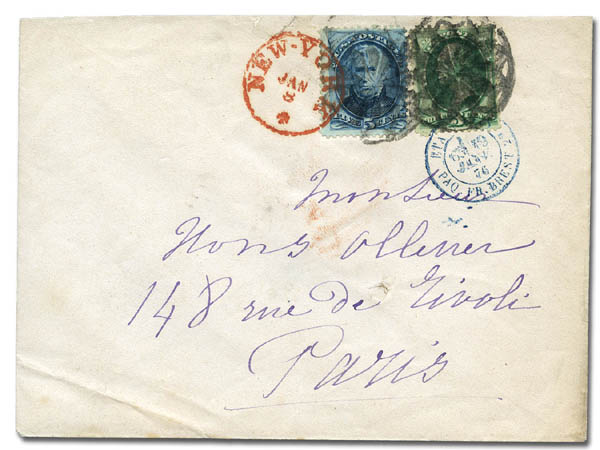 NEW-YORK
JAN
8
U.S. POSTAGE
5
ETA
JANV
76
PAQ. FR. BREST 2º
Monsieur
Hons Ollener
148 rue de Rivoli
Paris